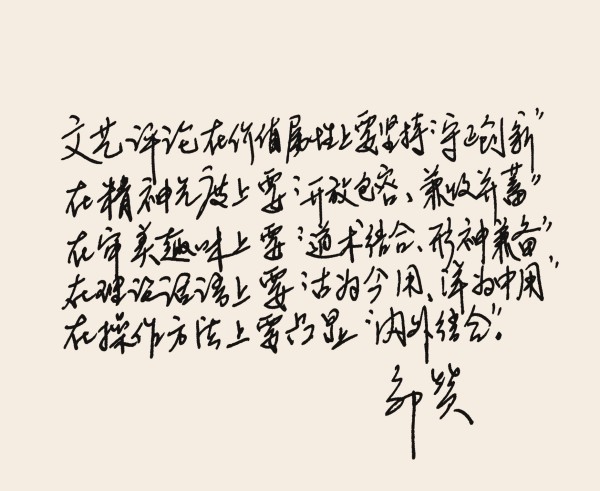 文艺评论在价值属性上要坚持“守正创新”
在精神气度上要“开放包容、兼收并蓄”
在审美趣味上要“道术结合、形神兼备”
在理论话语上要“古为今用、洋为中用”
在操作方法上要凸显“内外结合”。